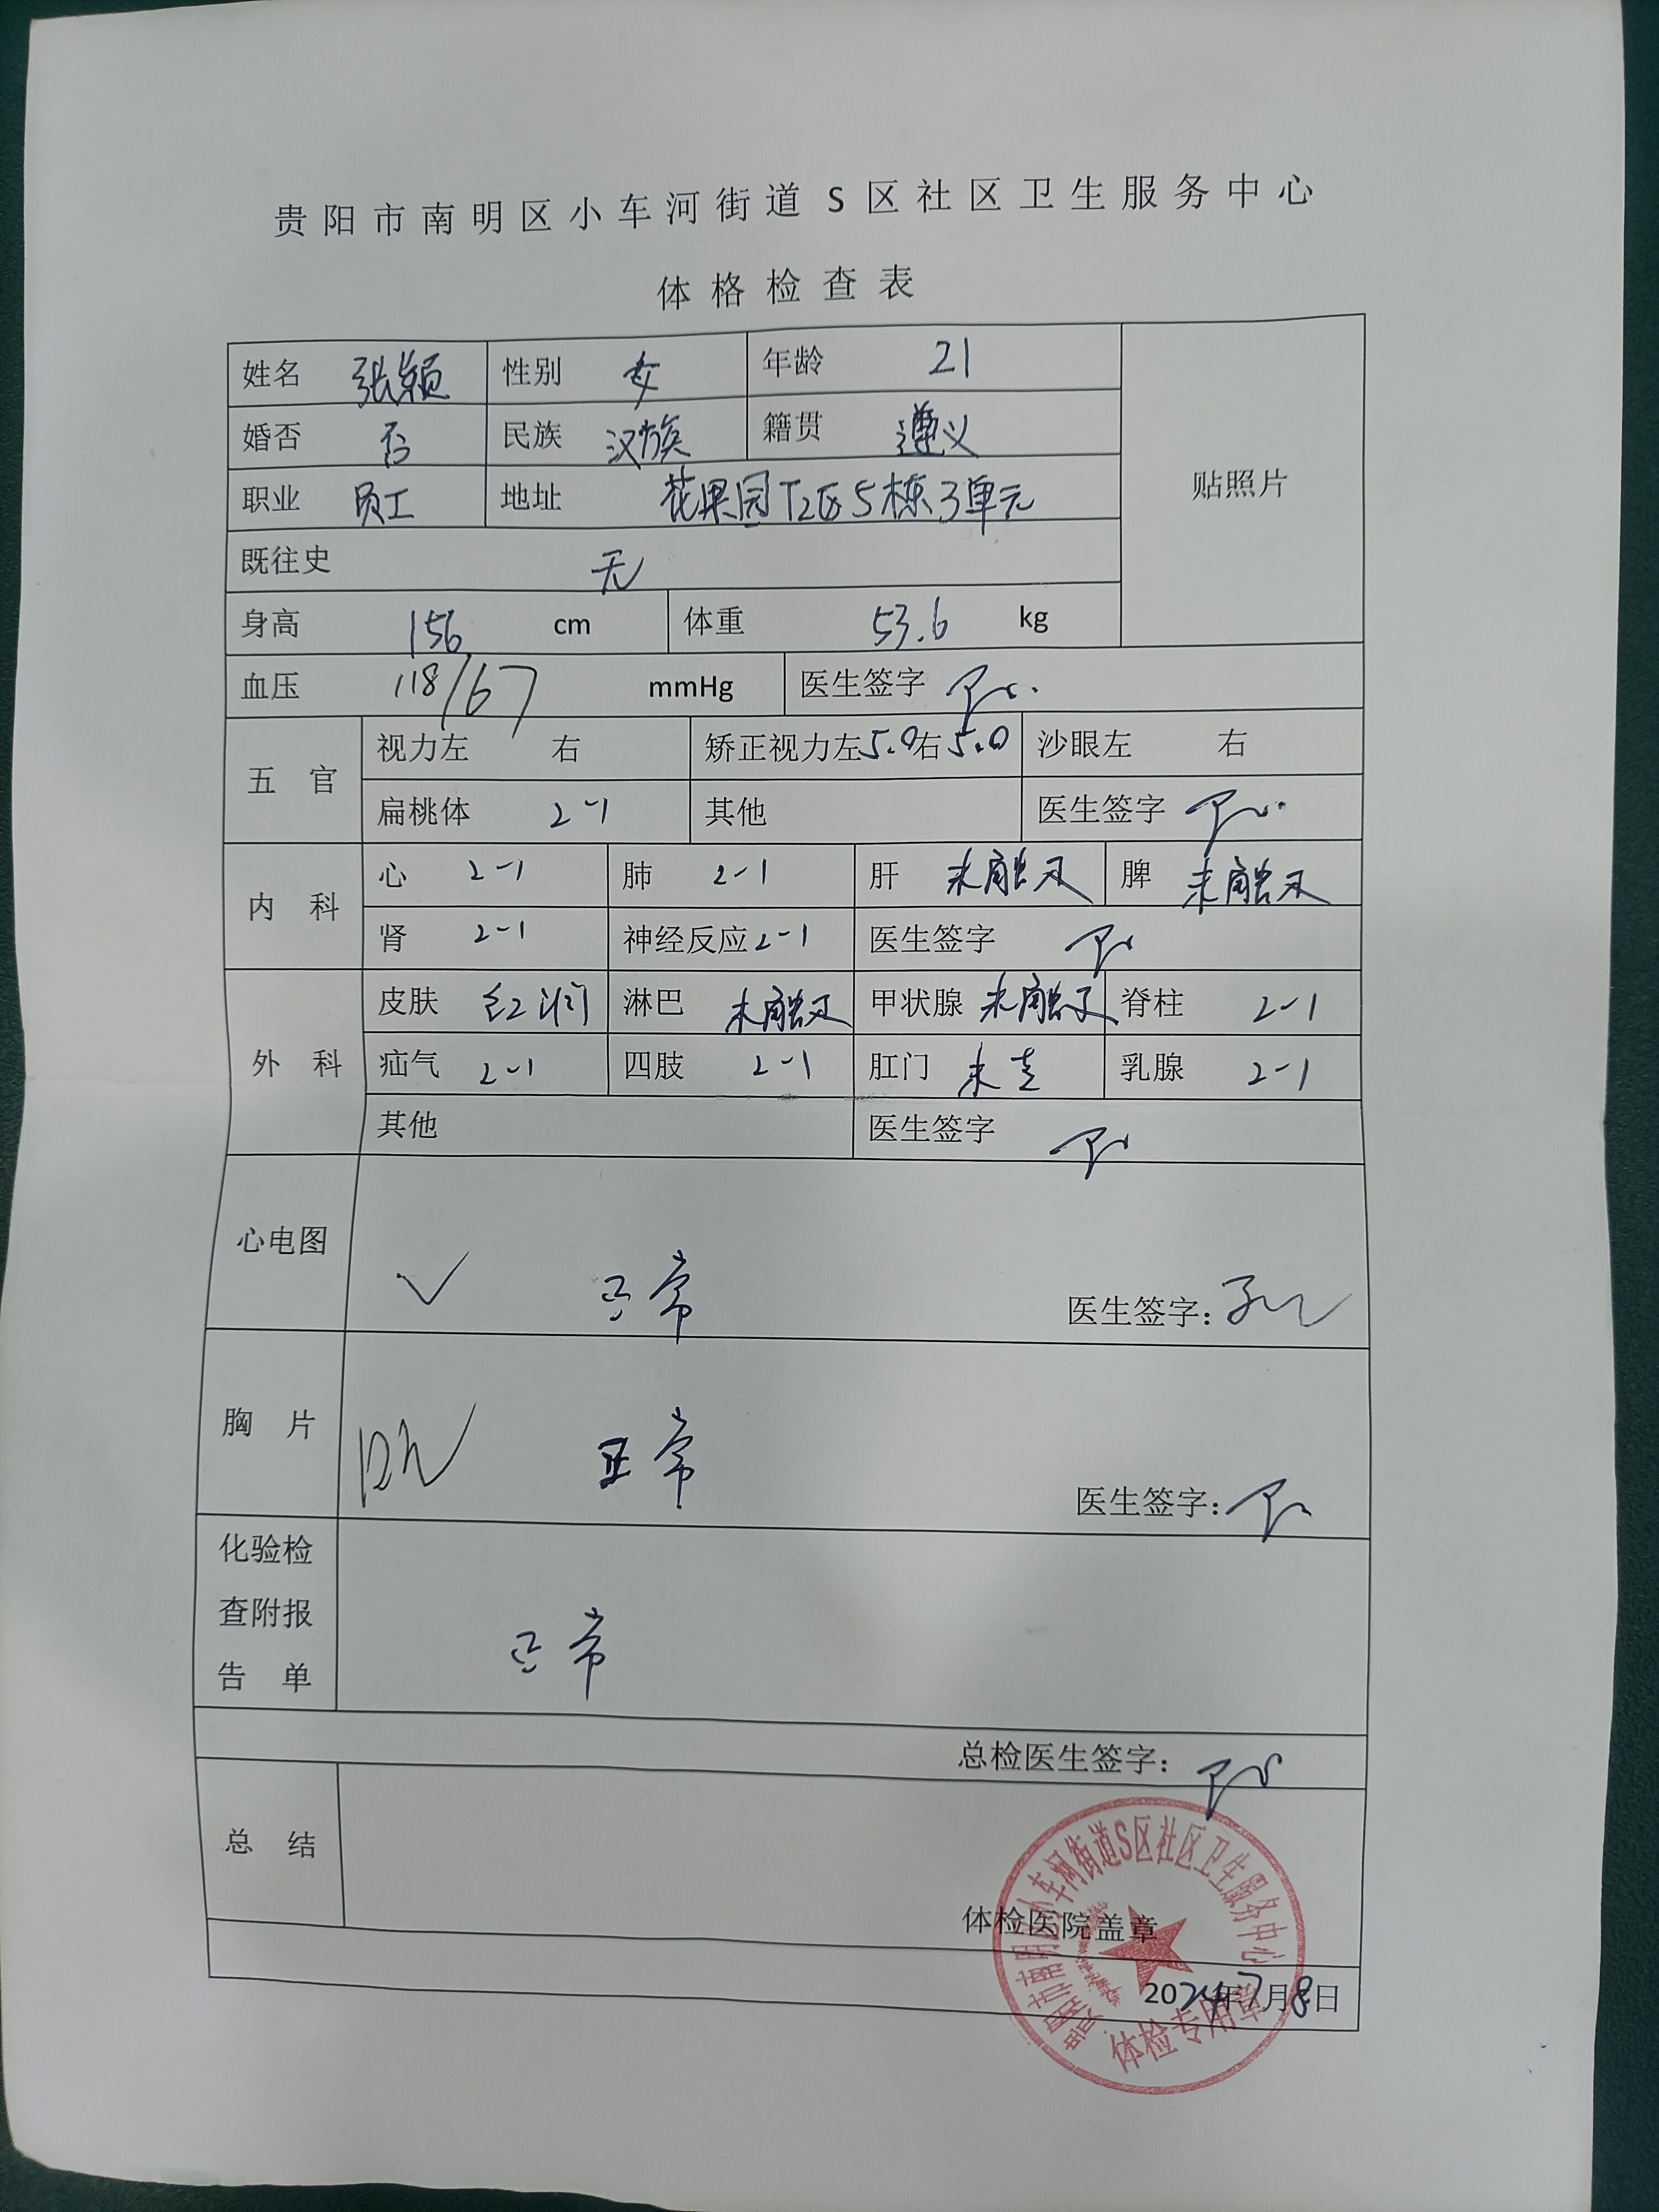 贵阳市南明区小车河街道S区社区卫生服务中心
体格检查表
姓名 张颖 性别 女 年龄 21
婚否 否 民族 汉族 籍贯 遵义
贴照片
职业 员工 地址 花果园T2区5栋3单元
既往史 无
身高 156 cm 体重 53.6 kg
血压 118/67 mmHg 医生签字
五官 视力左 右 矫正视力左5.0右5.0 沙眼左 右
扁桃体 2-1 其他 医生签字
内科 心 2-1 肺 2-1 肝 未触及 脾 未触及
肾 2-1 神经反应 2-1 医生签字
外科 皮肤 红润 淋巴 未触及 甲状腺 未触及 脊柱 2-1
疝气 2-1 四肢 2-1 肛门 未查 乳腺 2-1
其他 医生签字
心电图 ✓ 正常 医生签字:
胸片 正常 医生签字:
化验检查附报告单 正常
总检医生签字:
总结
体检医院盖章
2024年7月8日
贵阳市南明区小车河街道S区社区卫生服务中心
体检专用章